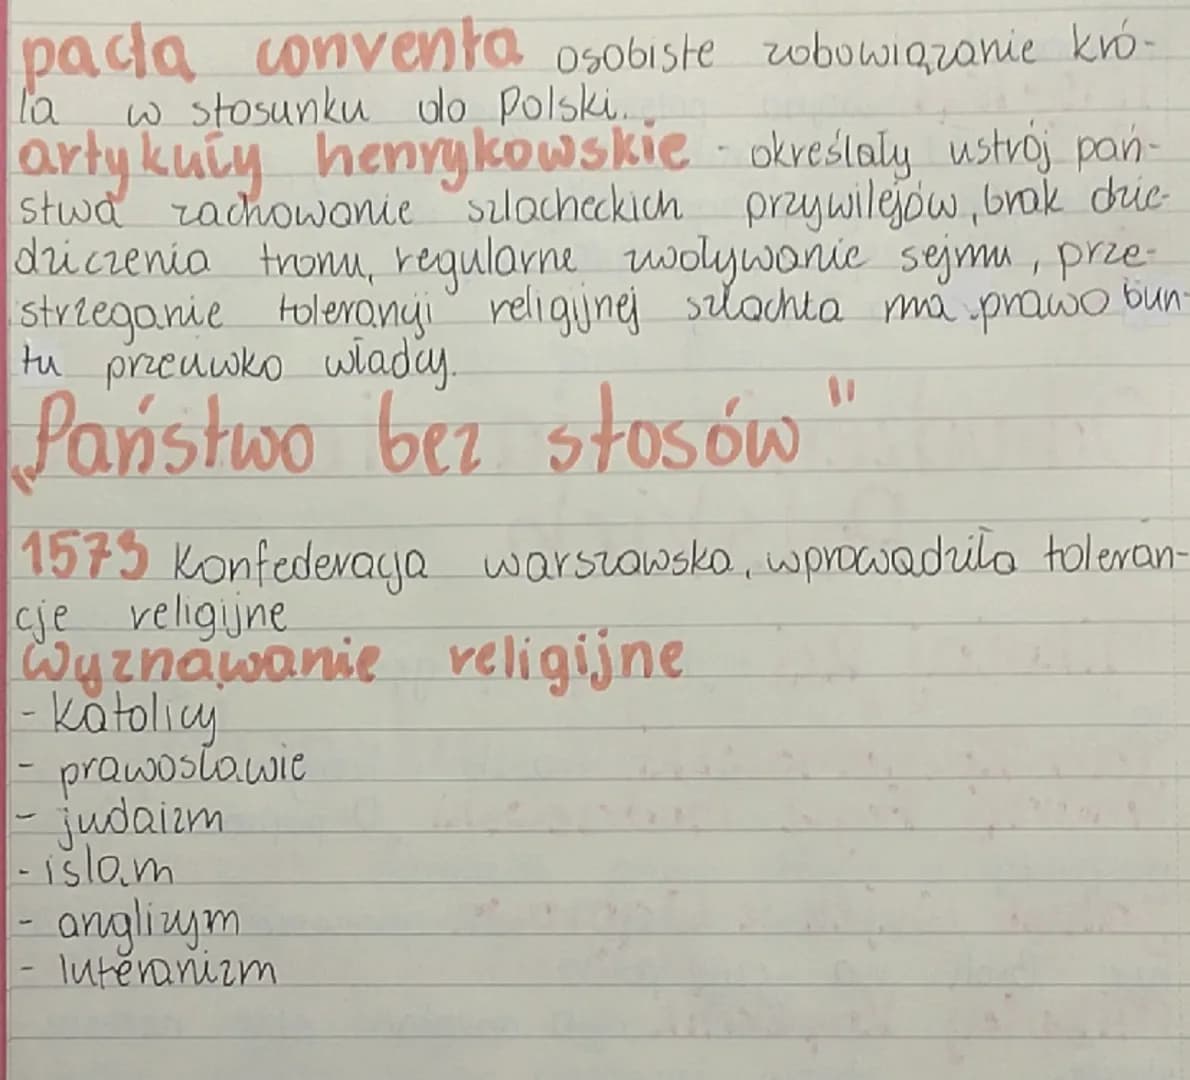 pacta conventa osobiste zobowiązanie kró-
la w stosunku do Polski.
artykuły henrykowskie - określały ustrój pań-
stwa zachowanie szlacheckich przywilejów, brak dzie-
dziczenia tronu, regularne zwoływanie sejmu, prze-
strzeganie tolerancji religijnej szlachta ma prawo bun-
tu przeciwko władcy.
„Państwo bez stosów"
1573 Konfederacja warszawska, wprowadziła toleran-
cje religijne
Wyznawanie religijne
- Katolicy
- prawosławie
- judaizm
- islam
- anglizym
- luteranizm